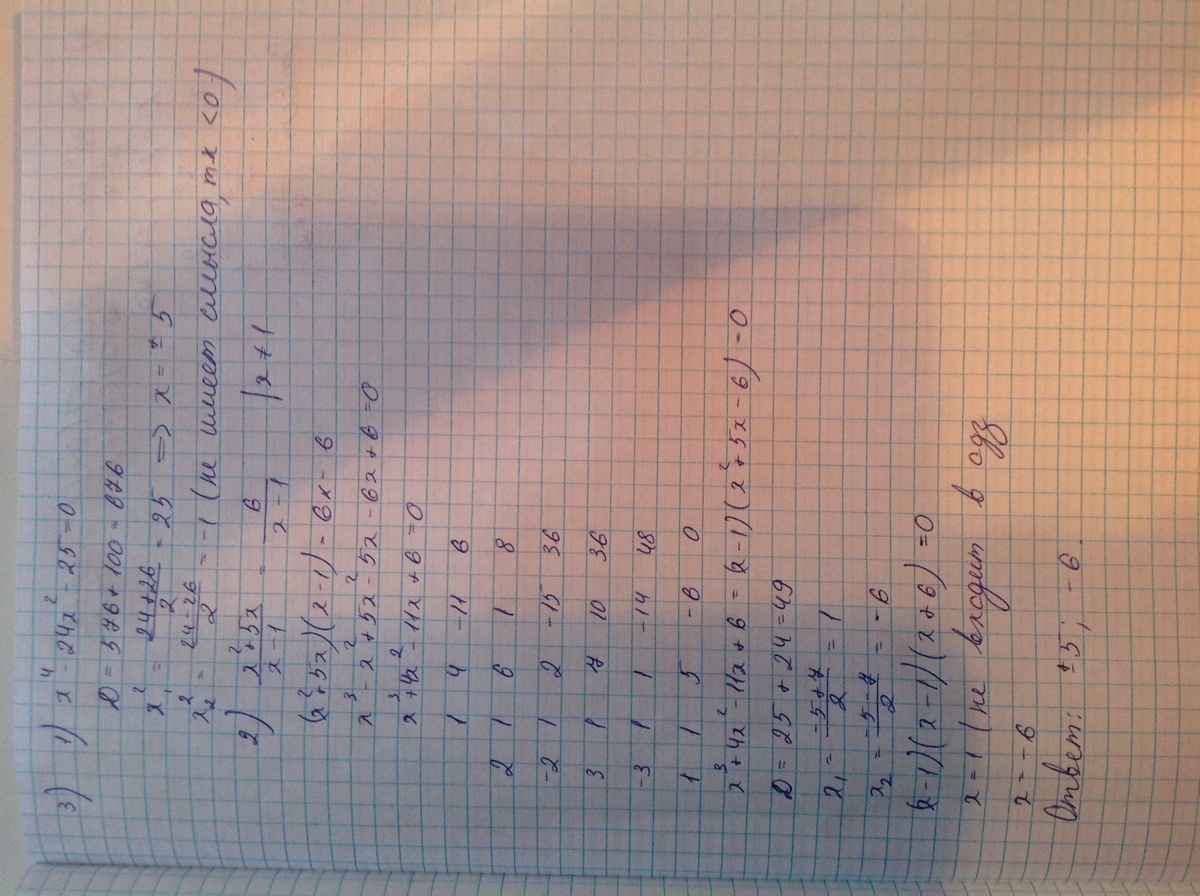 3) 1) x⁴ - 24x² - 25 = 0
D = 576 + 100 = 676
x₁² = (24+26)/2 = 25 => x = ± 5
x₂² = (24-26)/2 = -1 (не имеет смысла, т.к <0)
2) (x²+5x)/(x-1) = 6/(x-1) | x ≠ 1
(x²+5x)(x-1) = 6x - 6
x³ - x² + 5x² - 5x - 6x + 6 = 0
x³ + 4x² - 11x + 6 = 0
1 4 -11 6
2 1 6 1 8
-2 1 2 -15 36
3 1 7 10 36
-3 1 1 -14 48
1 1 5 -6 0
x³ + 4x² - 11x + 6 = (x-1)(x² + 5x - 6) = 0
D = 25 + 24 = 49
x₁ = (-5+7)/2 = 1
x₂ = (-5-7)/2 = -6
(x-1)(x-1)(x+6) = 0
x = 1 (не входит в одз
x = -6
Ответ: ±5; -6.